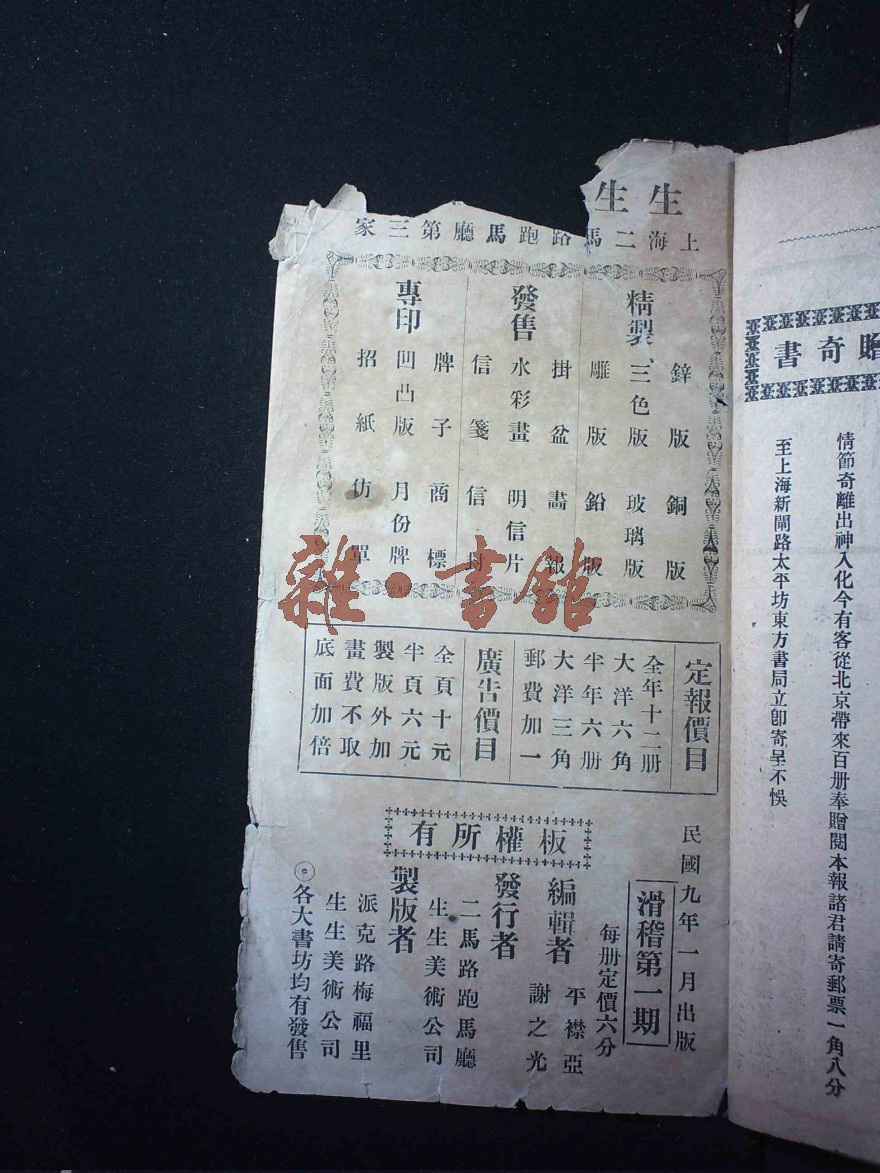 贈奇書
情節奇離出神入化今有客從北京帶來百册奉贈閱本報諸君請寄郵票一角八分
至上海新閘路太平坊東方書局立卽寄呈不悞
生生
上海二馬路跑馬廳第三家
精製
鋅版銅版
三色版玻璃版
雕版鉛版
發售
掛盆畵報
水彩畫明信片
信箋信封
專印
牌子商標
凹凸版月份牌
招紙仿單
定報價目
全年十二册
大洋六角
半年六册
大洋三角
郵費加一
廣告價目
全頁十元
半頁六元
製版外加
畫費不取
底面加倍
民國九年一月出版
滑稽第一期
每册定價六分
板權所有
編輯者
平襟亞
謝之光
發行者
二馬路跑馬廳
生生美術公司
製版者
派克路梅福里
生生美術公司
各大書坊均有發售
雜·書館